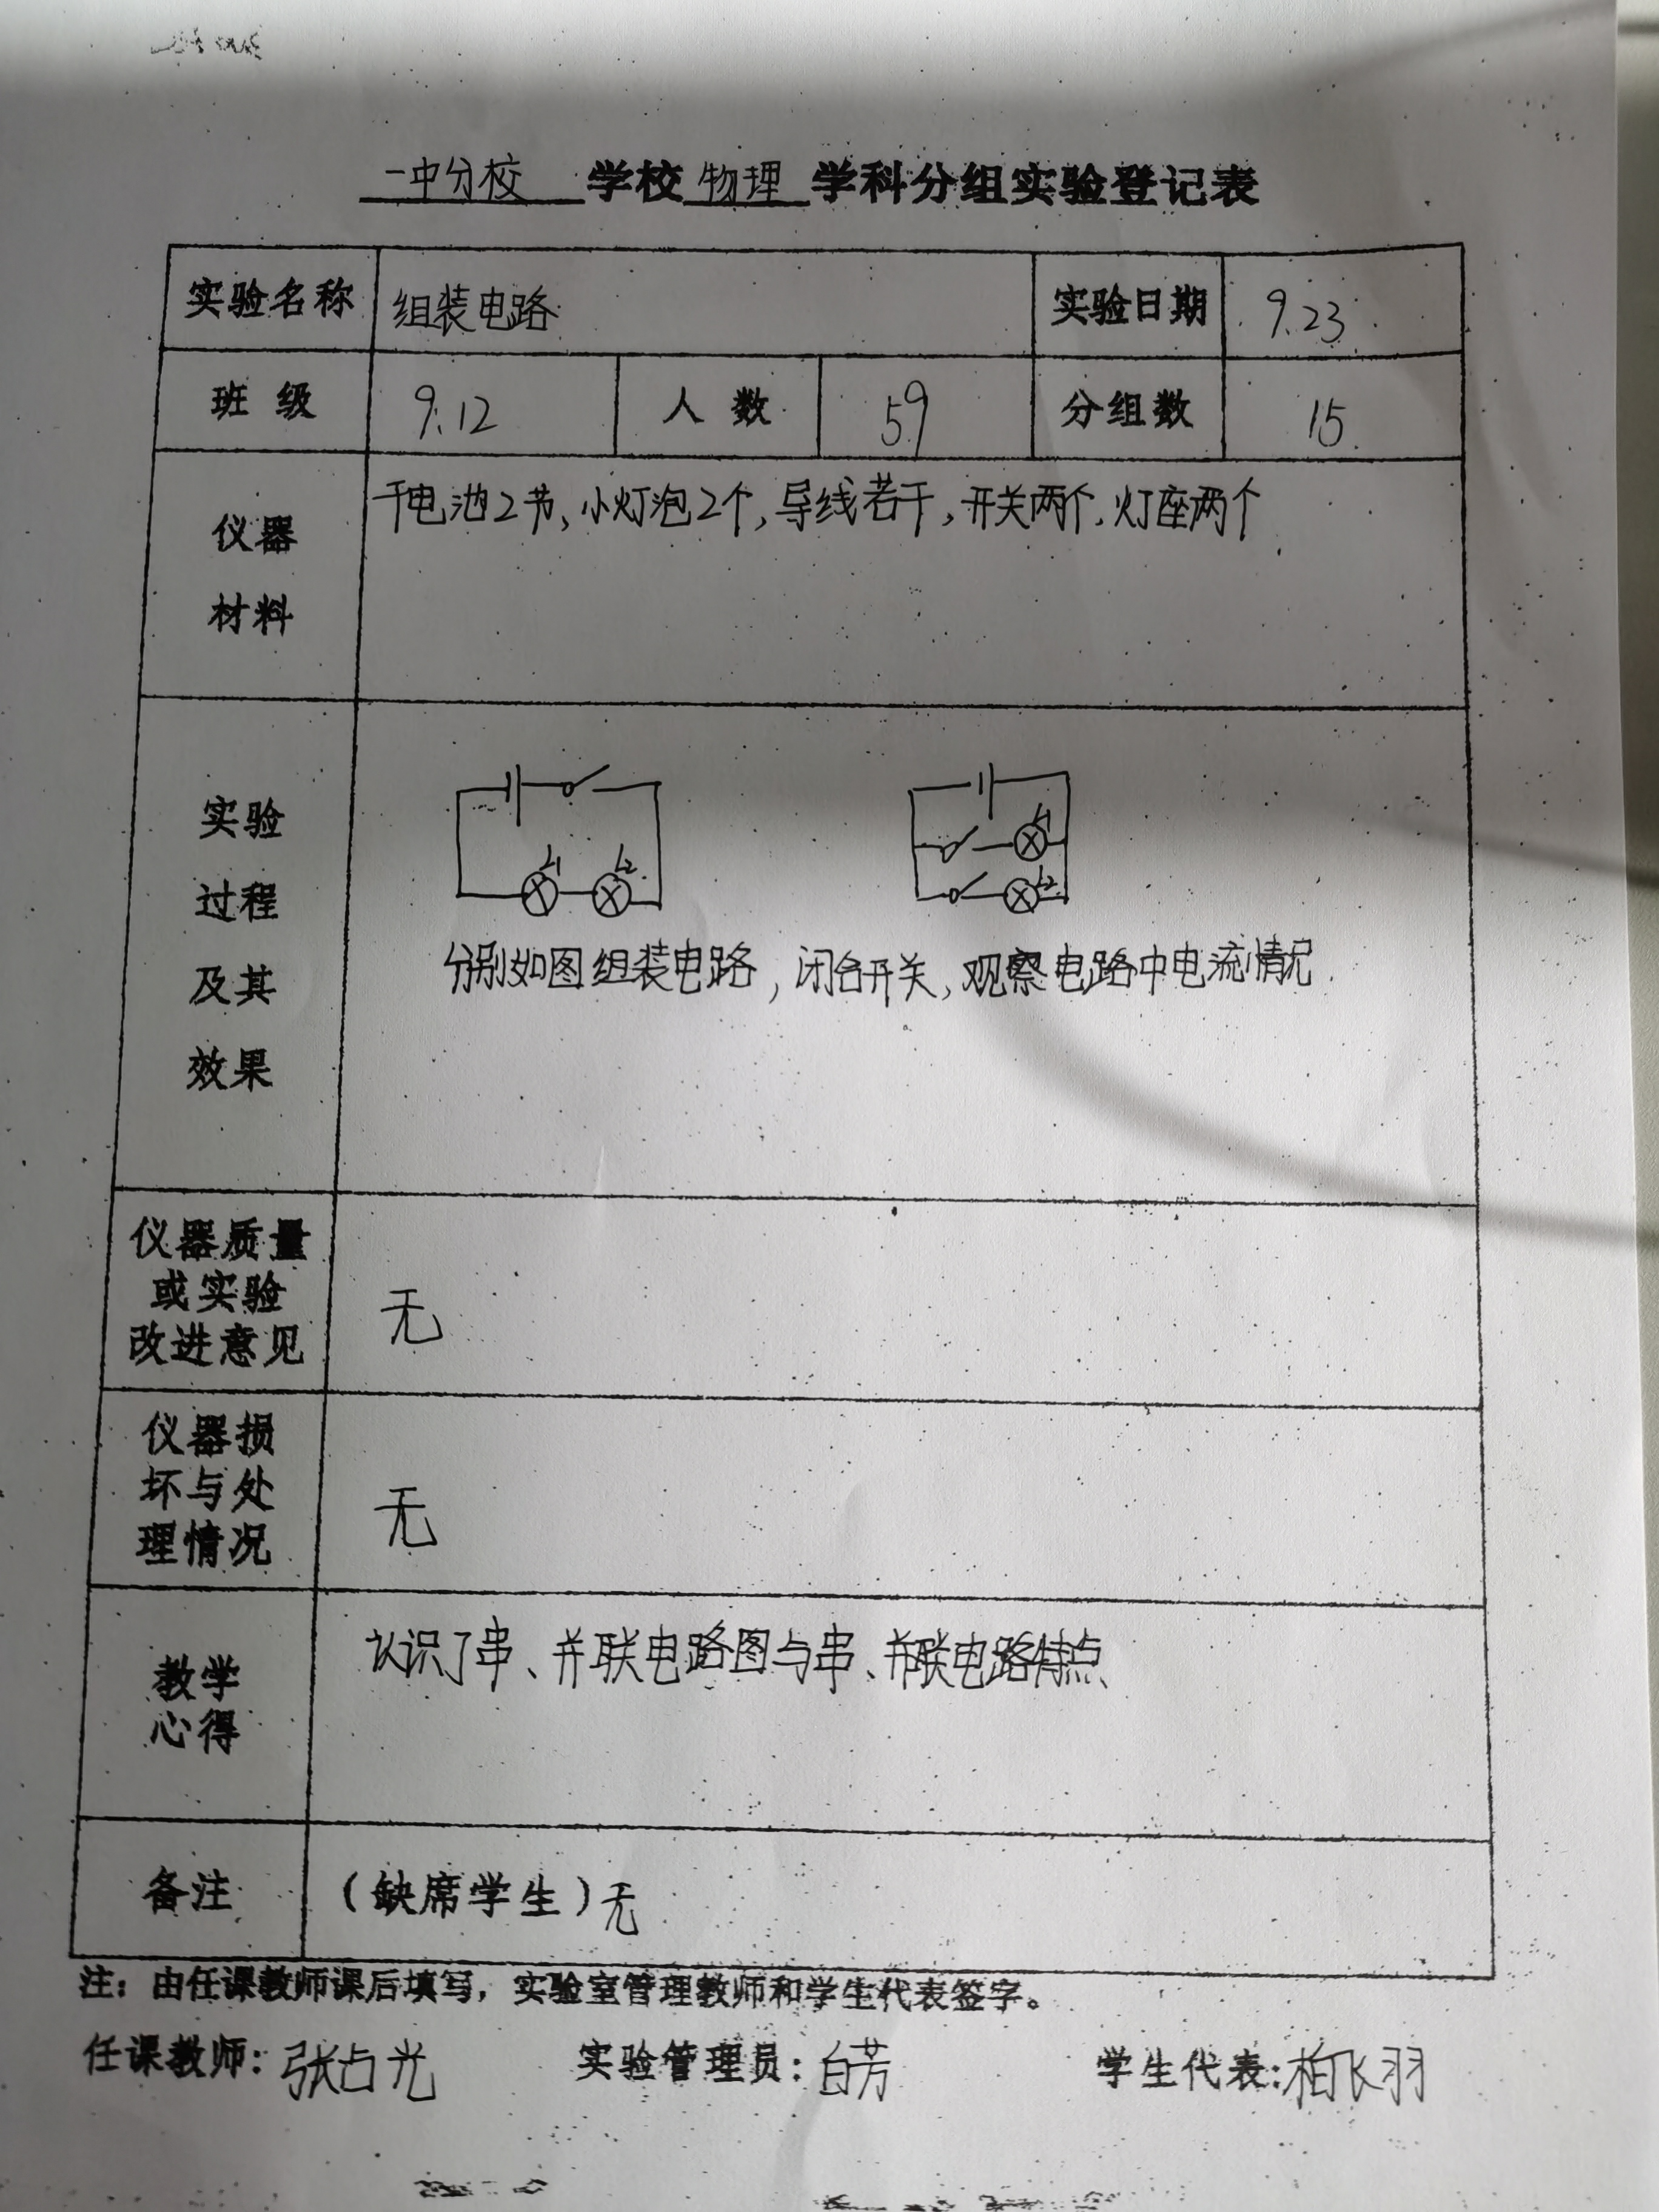 一中分校 学校 物理 学科分组实验登记表
实验名称 组装电路 实验日期 9.23
班 级 9.12 人 数 59 分组数 15
仪器
材料
干电池2节,小灯泡2个,导线若干,开关两个,灯座两个
实验
过程
及其
效果
L1 L2 L1
L2
分别如图组装电路,闭合开关,观察电路中电流情况.
仪器质量
或实验
改进意见
无
仪器损
坏与处
理情况
无
教学
心得
认识了串、并联电路图与串、并联电路特点
备注 (缺席学生)无
注：由任课教师课后填写，实验室管理教师和学生代表签字。
任课教师: 张占光 实验管理员: 白芳 学生代表: